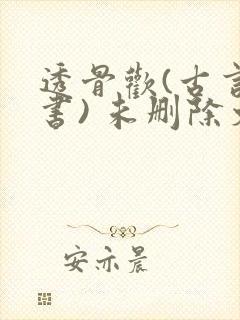 透骨歡(古言
書)未删除
安亦晨